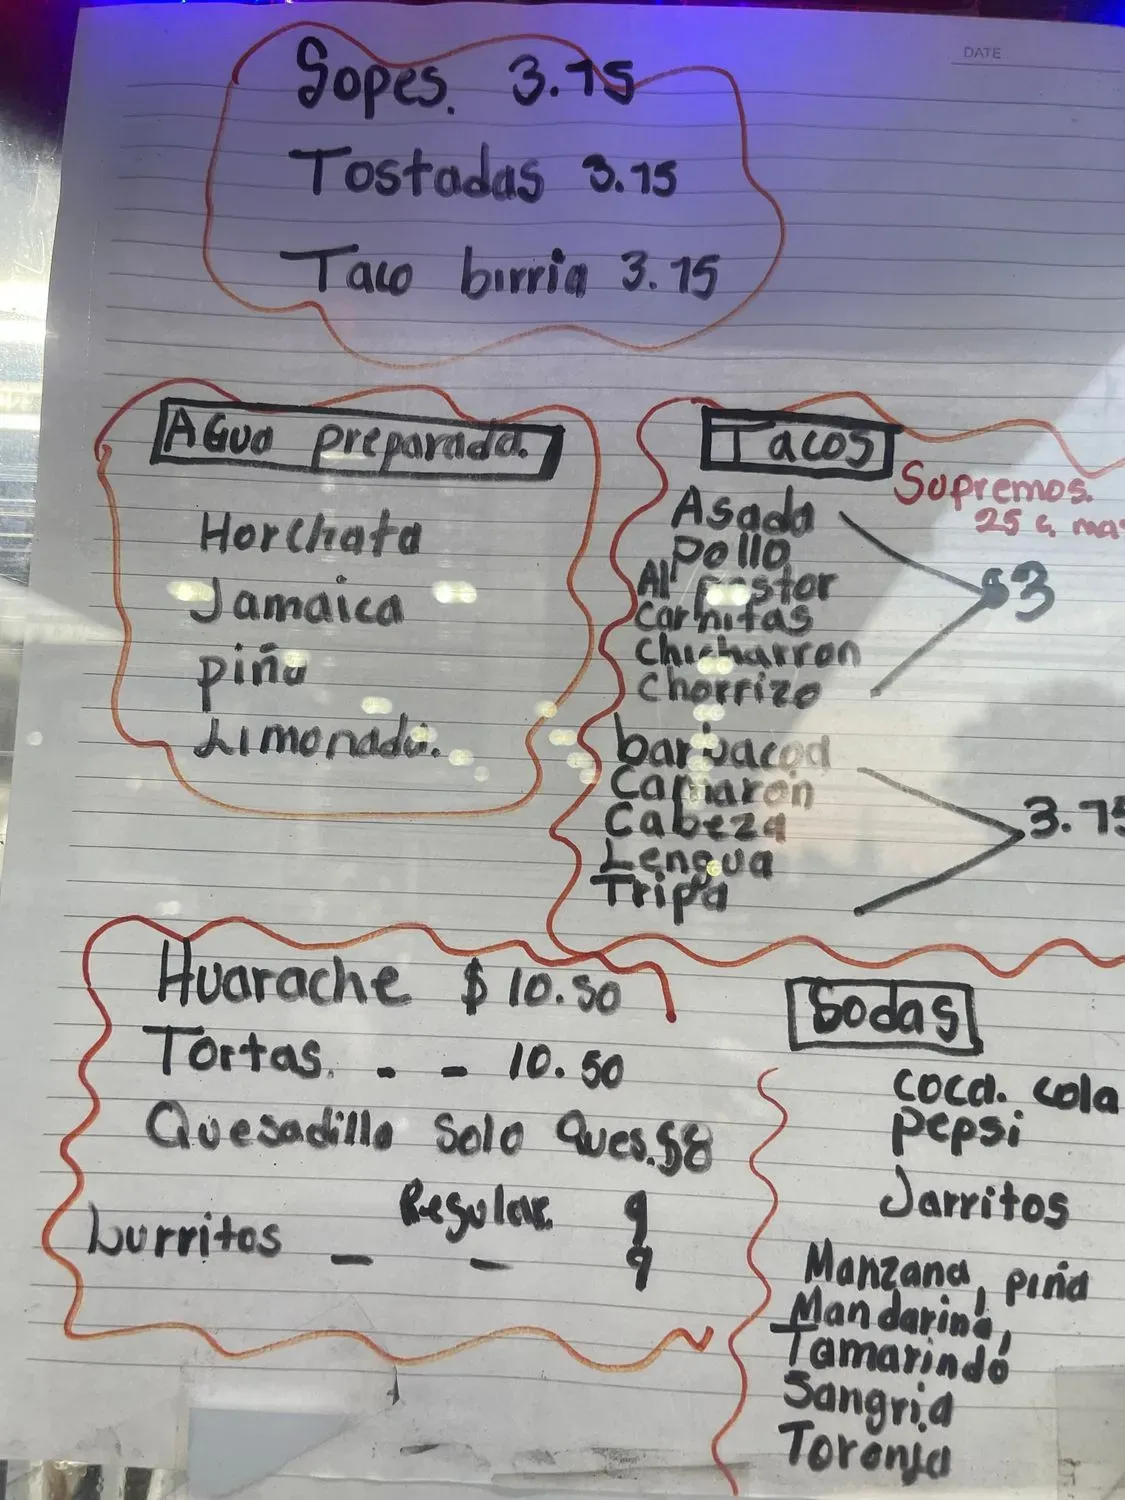 DATE
Sopes. 3.75
Tostadas 3.75
Taco birria 3.75
Agua preparada.
Horchata
Jamaica
piña
Limonada.
Tacos
Supremos.
25 ¢ mas
Asada
pollo
Al pastor
Carnitas
Chicharron
Chorrizo
$3
barbacoa
Camaron
Cabeza
Lengua
Tripa
3.75
Huarache $10.50
Tortas. - - 10.50
Quesadilla Solo Ques. $8
Regular. 9
burritos - - 9
Sodas
coca. cola
pepsi
Jarritos
Manzana, piña
Mandarina,
Tamarindo
Sangria
Toronja